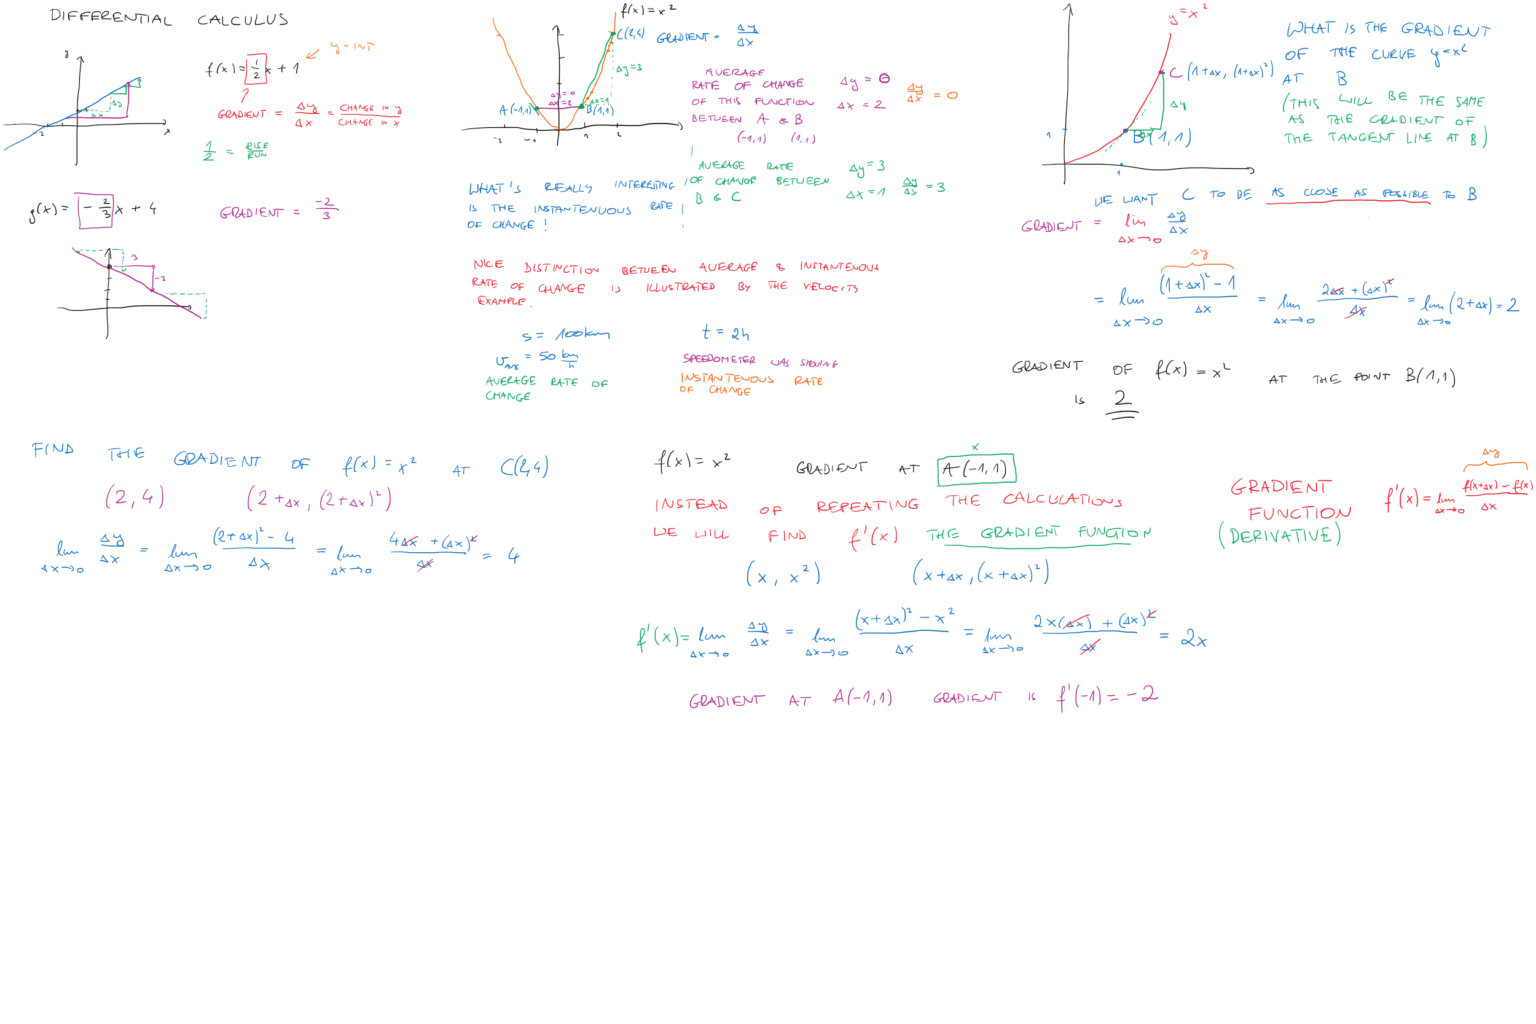 DIFFERENTIAL CALCULUS
y
x
-2
Δy
Δx
f(x) = 1/2 x + 1
y-INT
GRADIENT = Δy/Δx = CHANGE IN y/CHANGE IN x
1/2 = RISE/RUN
g(x) = -2/3 x + 4
GRADIENT = -2/3
3
-2
f(x) = x²
C(2,4)
GRADIENT = Δy/Δx
Δy=3
Δy=0
Δx=2
Δx=1
A(-1,1)
B(1,1)
-2 -1 1 2
AVERAGE
RATE OF CHANGE
OF THIS FUNCTION
BETWEEN A & B
(-1,1) (1,1)
Δy = 0
Δx = 2
Δy/Δx = 0
AVERAGE RATE
OF CHANGE BETWEEN
B & C
Δy = 3
Δx = 1
Δy/Δx = 3
WHAT'S REALLY INTERESTING
IS THE INSTANTENUOUS RATE
OF CHANGE !
NICE DISTINCTION BETWEEN AVERAGE & INSTANTENOUS
RATE OF CHANGE IS ILLUSTRATED BY THE VELOCITY
EXAMPLE.
s = 100km
t = 2h
v AVE = 50 km/h
AVERAGE RATE OF
CHANGE
SPEEDOMETER WAS SHOWING
INSTANTENOUS RATE
OF CHANGE
y = x²
C (1+Δx, (1+Δx)²)
Δy
Δx
B(1,1)
1
1
WHAT IS THE GRADIENT
OF THE CURVE y=x²
AT B
(THIS WILL BE THE SAME
AS THE GRADIENT OF
THE TANGENT LINE AT B)
WE WANT C TO BE AS CLOSE AS POSSIBLE TO B
GRADIENT = lim Δx→0 Δy/Δx
Δy
= lim Δx→0 ((1+Δx)² - 1)/Δx = lim Δx→0 (2Δx + (Δx)²)/Δx = lim Δx→0 (2+Δx) = 2
GRADIENT OF f(x) = x² AT THE POINT B(1,1)
IS 2
FIND THE GRADIENT OF f(x) = x² AT C(2,4)
(2,4) (2+Δx, (2+Δx)²)
lim Δx→0 Δy/Δx = lim Δx→0 ((2+Δx)² - 4)/Δx = lim Δx→0 (4Δx + (Δx)²)/Δx = 4
x
f(x) = x² GRADIENT AT A(-1,1)
INSTEAD OF REPEATING THE CALCULATIONS
WE WILL FIND f'(x) THE GRADIENT FUNCTION
(x, x²) (x+Δx, (x+Δx)²)
f'(x) = lim Δx→0 Δy/Δx = lim Δx→0 ((x+Δx)² - x²)/Δx = lim Δx→0 (2x(Δx) + (Δx)²)/Δx = 2x
GRADIENT AT A(-1,1) GRADIENT IS f'(-1) = -2
GRADIENT
FUNCTION
(DERIVATIVE)
Δy
f'(x) = lim Δx→0 (f(x+Δx) - f(x))/Δx